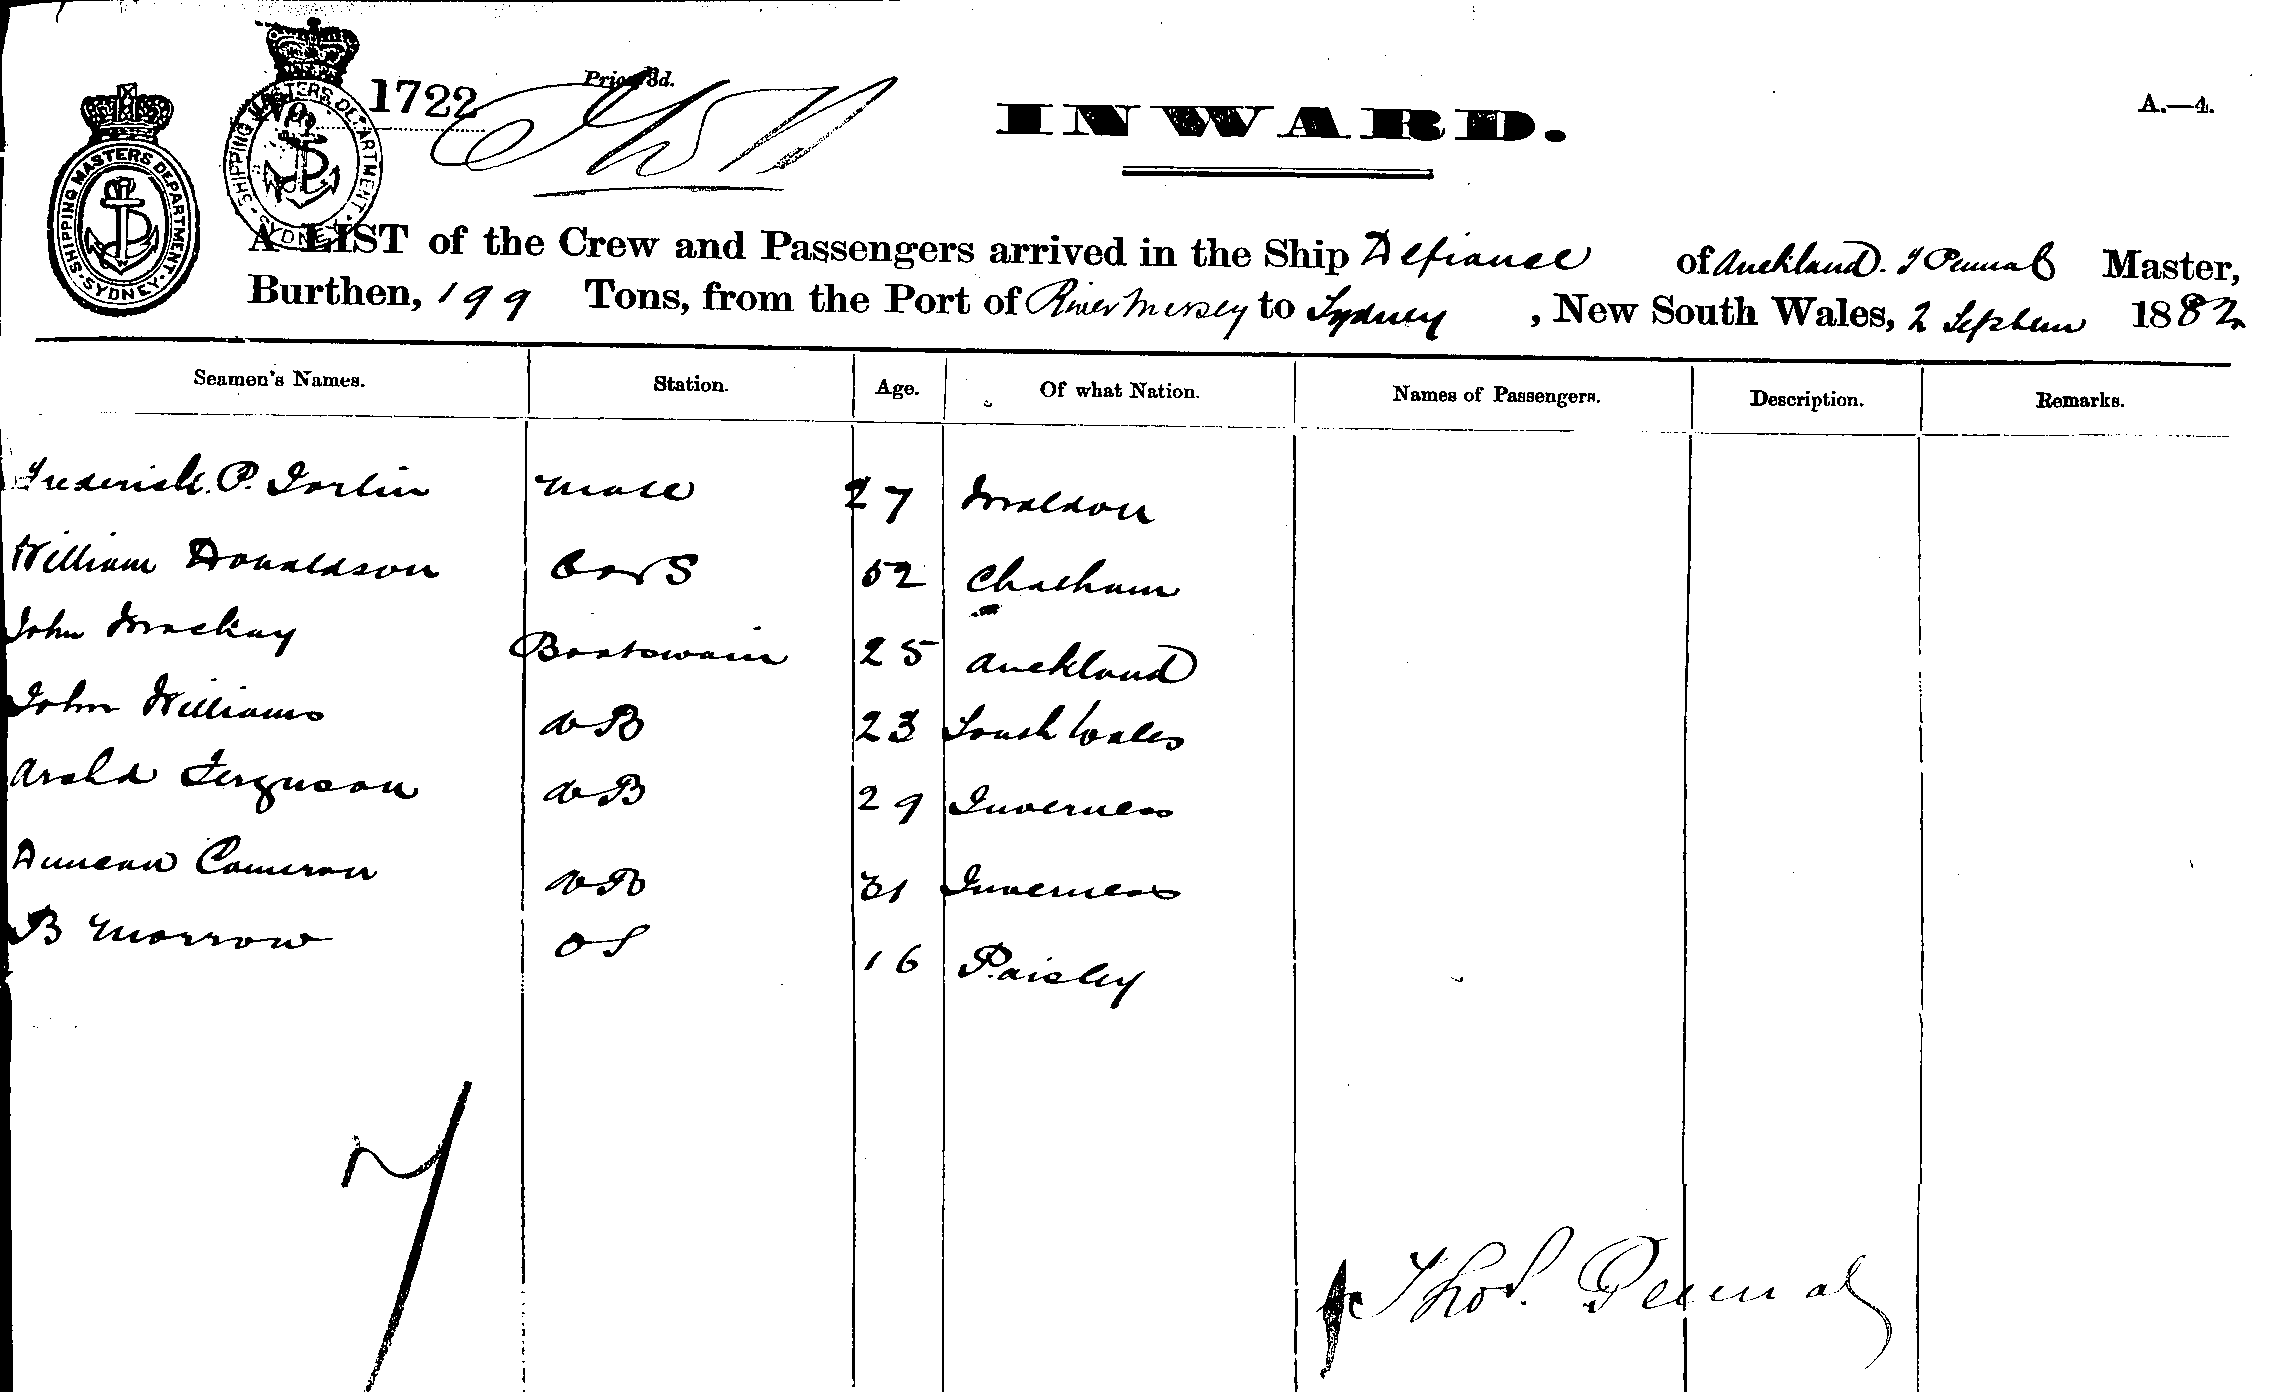 SHIPPING MASTERS DEPARTMENT · SYDNEY ·
SHIPPING MASTERS DEPARTMENT · SYDNEY ·
No. 1722
Price 3d.
INWARD.
A.—4.
A LIST of the Crew and Passengers arrived in the Ship Defiance of Auckland. T Pennal Master,
Burthen, 199 Tons, from the Port of River Mersey to Sydney, New South Wales, 2 Septem 1882
Seamen's Names. Station. Age. Of what Nation. Names of Passengers. Description. Remarks.
Frederick. P. Mate 27 Maldon
William Donaldson C & S 52 Chatham
John Mackay Boatswain 25 Auckland
John Williams AB 23 South Wales
Arcld Ferguson AB 29 Inverness
Duncan Cameron AB 31 Inverness
B Morrow OS 16 Paisley
7
Thos. Pennal